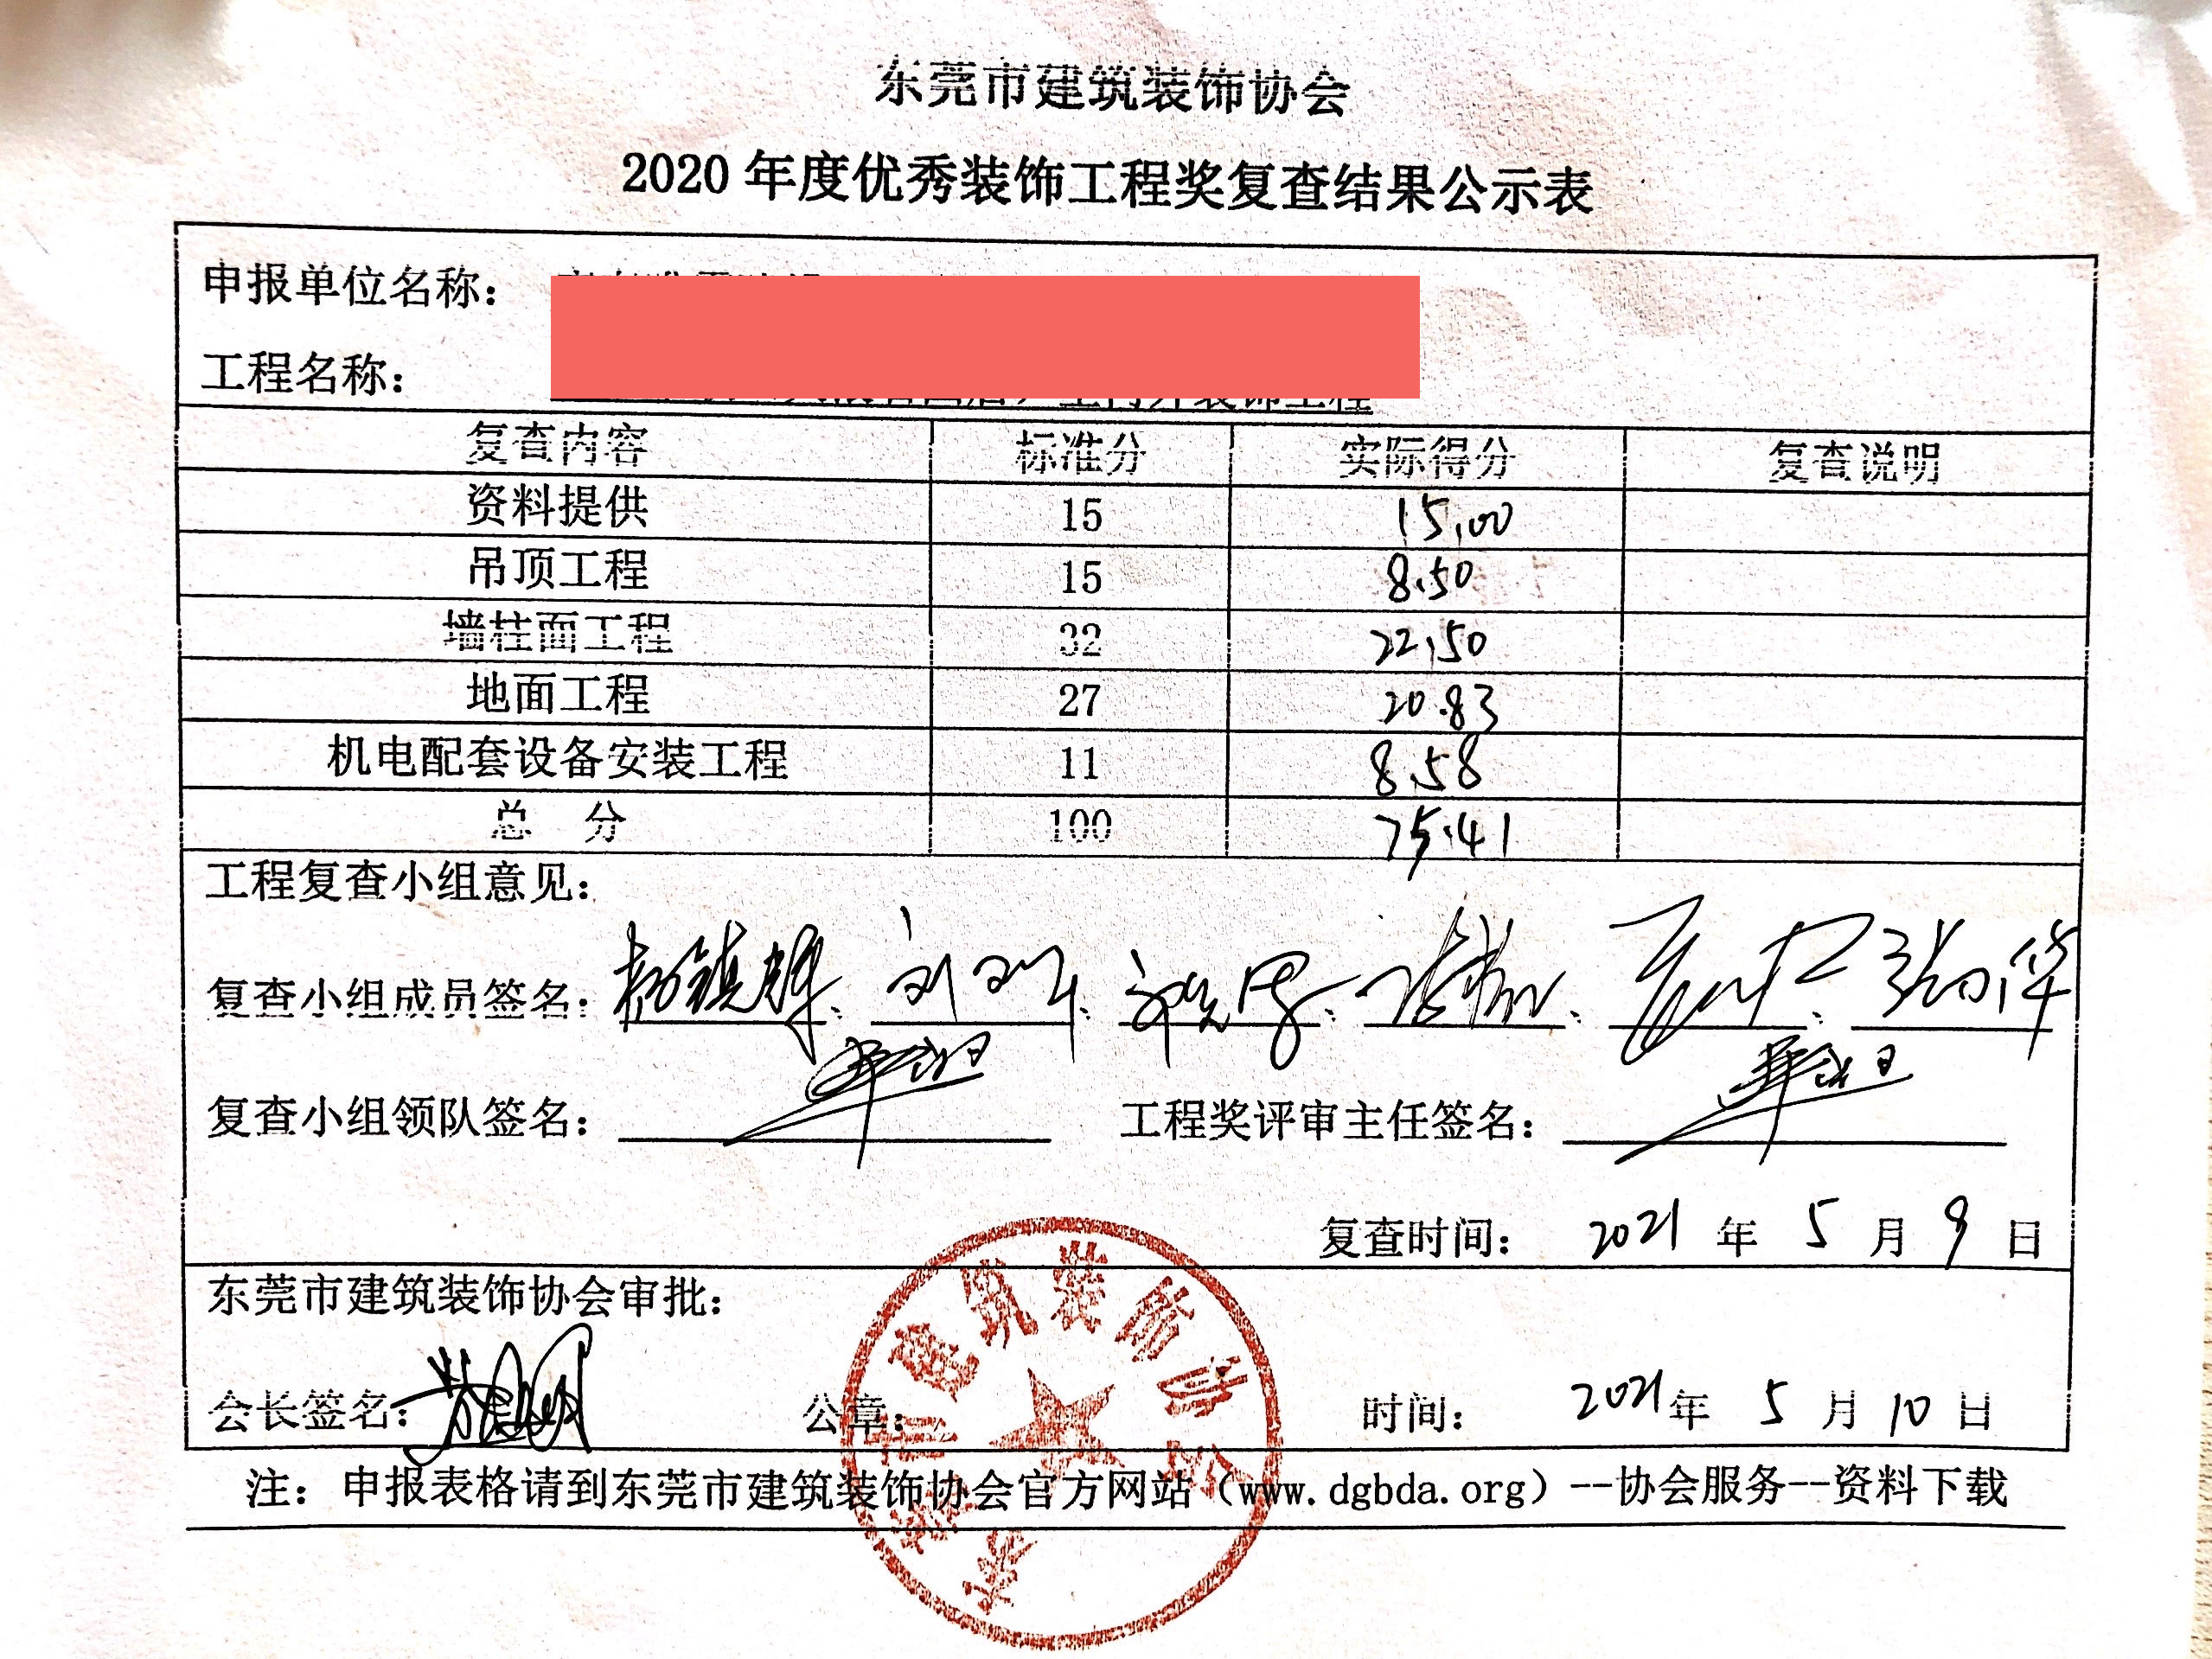 东莞市建筑装饰协会
2020 年度优秀装饰工程奖复查结果公示表
申报单位名称：
工程名称：
复查内容 标准分 实际得分 复查说明
资料提供 15 15.00
吊顶工程 15 8.50
墙柱面工程 32 22.50
地面工程 27 20.83
机电配套设备安装工程 11 8.58
总 分 100 75.41
工程复查小组意见：
复查小组成员签名：
复查小组领队签名： 工程奖评审主任签名：
复查时间： 2021 年 5 月 9 日
东莞市建筑装饰协会审批：
会长签名： 公章： 时间： 2021 年 5 月 10 日
东莞市建筑装饰协会
注：申报表格请到东莞市建筑装饰协会官方网站（www.dgbda.org）--协会服务--资料下载